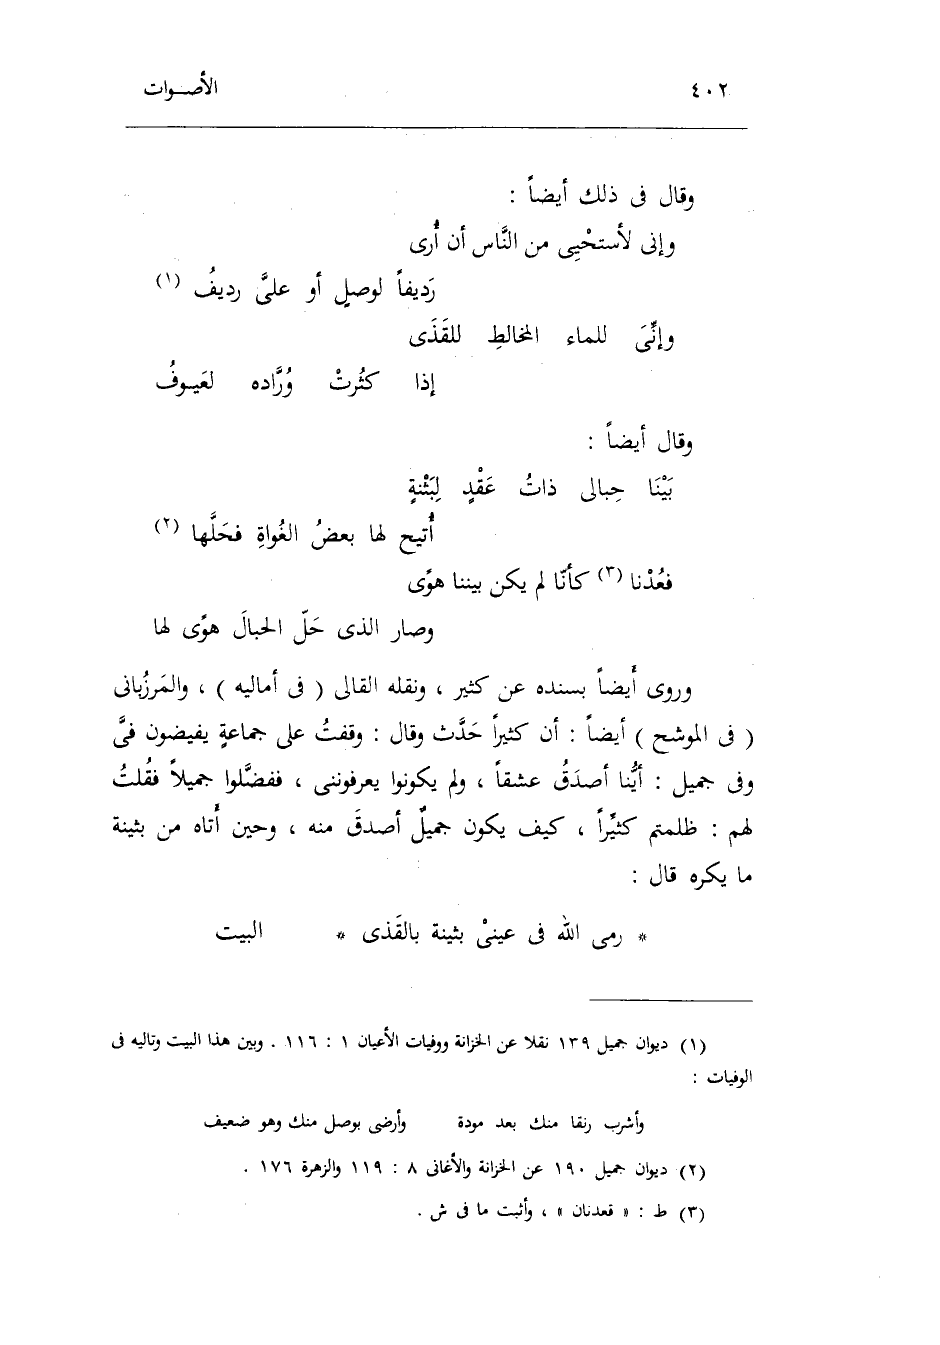 ٤٠٢ الأصوات
وقال فى ذلك أيضاً :
وإنى لأستحْيِى من النَّاس أن أُرى
رَديفاً لوصلٍ أو علىَّ رديفُ (١)
وإنِّىَ للماء المخالطِ للقَذَى
إذا كثُرتْ وُرَّاده لعَيوفُ
وقال أيضاً :
بَيْنَا حِبالى ذاتُ عَقْدٍ لِبَثْنةٍ
أُتيح لها بعضُ الغُواةِ فحَلَّها (٢)
فعُدْنا (٣) كأنّا لم يكن بيننا هوًى
وصار الذى حَلّ الحبالَ هوًى لها
وروى أيضاً بسنده عن كثير ، ونقله القالى ( فى أماليه ) ، والمَرزُبانى
( فى الموشح ) أيضاً : أن كثيراً حَدَّث وقال : وقفتُ على جماعةٍ يفيضون فىَّ
وفى جميل : أيُّنا أصدَقُ عشقاً ، ولم يكونوا يعرفوننى ، ففضَّلوا جميلاً فقُلتُ
لهم : ظلمتم كثيِّراً ، كيف يكون جميلٌ أصدقَ منه ، وحين أتاه من بثينة
ما يكره قال :
* رمى الله فى عينىْ بثينة بالقَذى * البيت
(١) ديوان جميل ١٣٩ نقلا عن الخزانة ووفيات الأعيان ١ : ١١٦ . وبين هذا البيت وتاليه فى
الوفيات :
وأشرب رنقا منك بعد مودة وأرضى بوصل منك وهو ضعيف
(٢) ديوان جميل ١٩٠ عن الخزانة والأغانى ٨ : ١١٩ والزهرة ١٧٦ .
(٣) ط : « قعدنان » ، وأثبت ما فى ش .